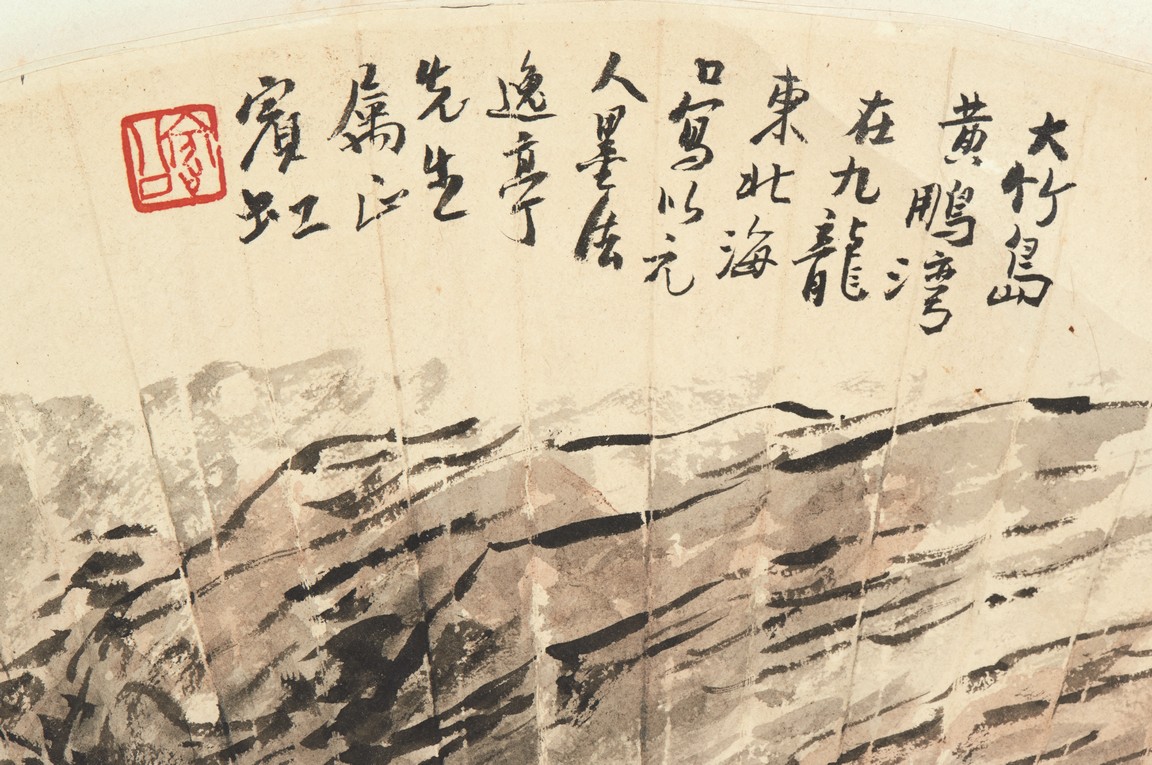 大竹島
黄鵬灣
在九龍
東北海
口寫以元
人墨法
逸亭
先生
屬正
賓虹